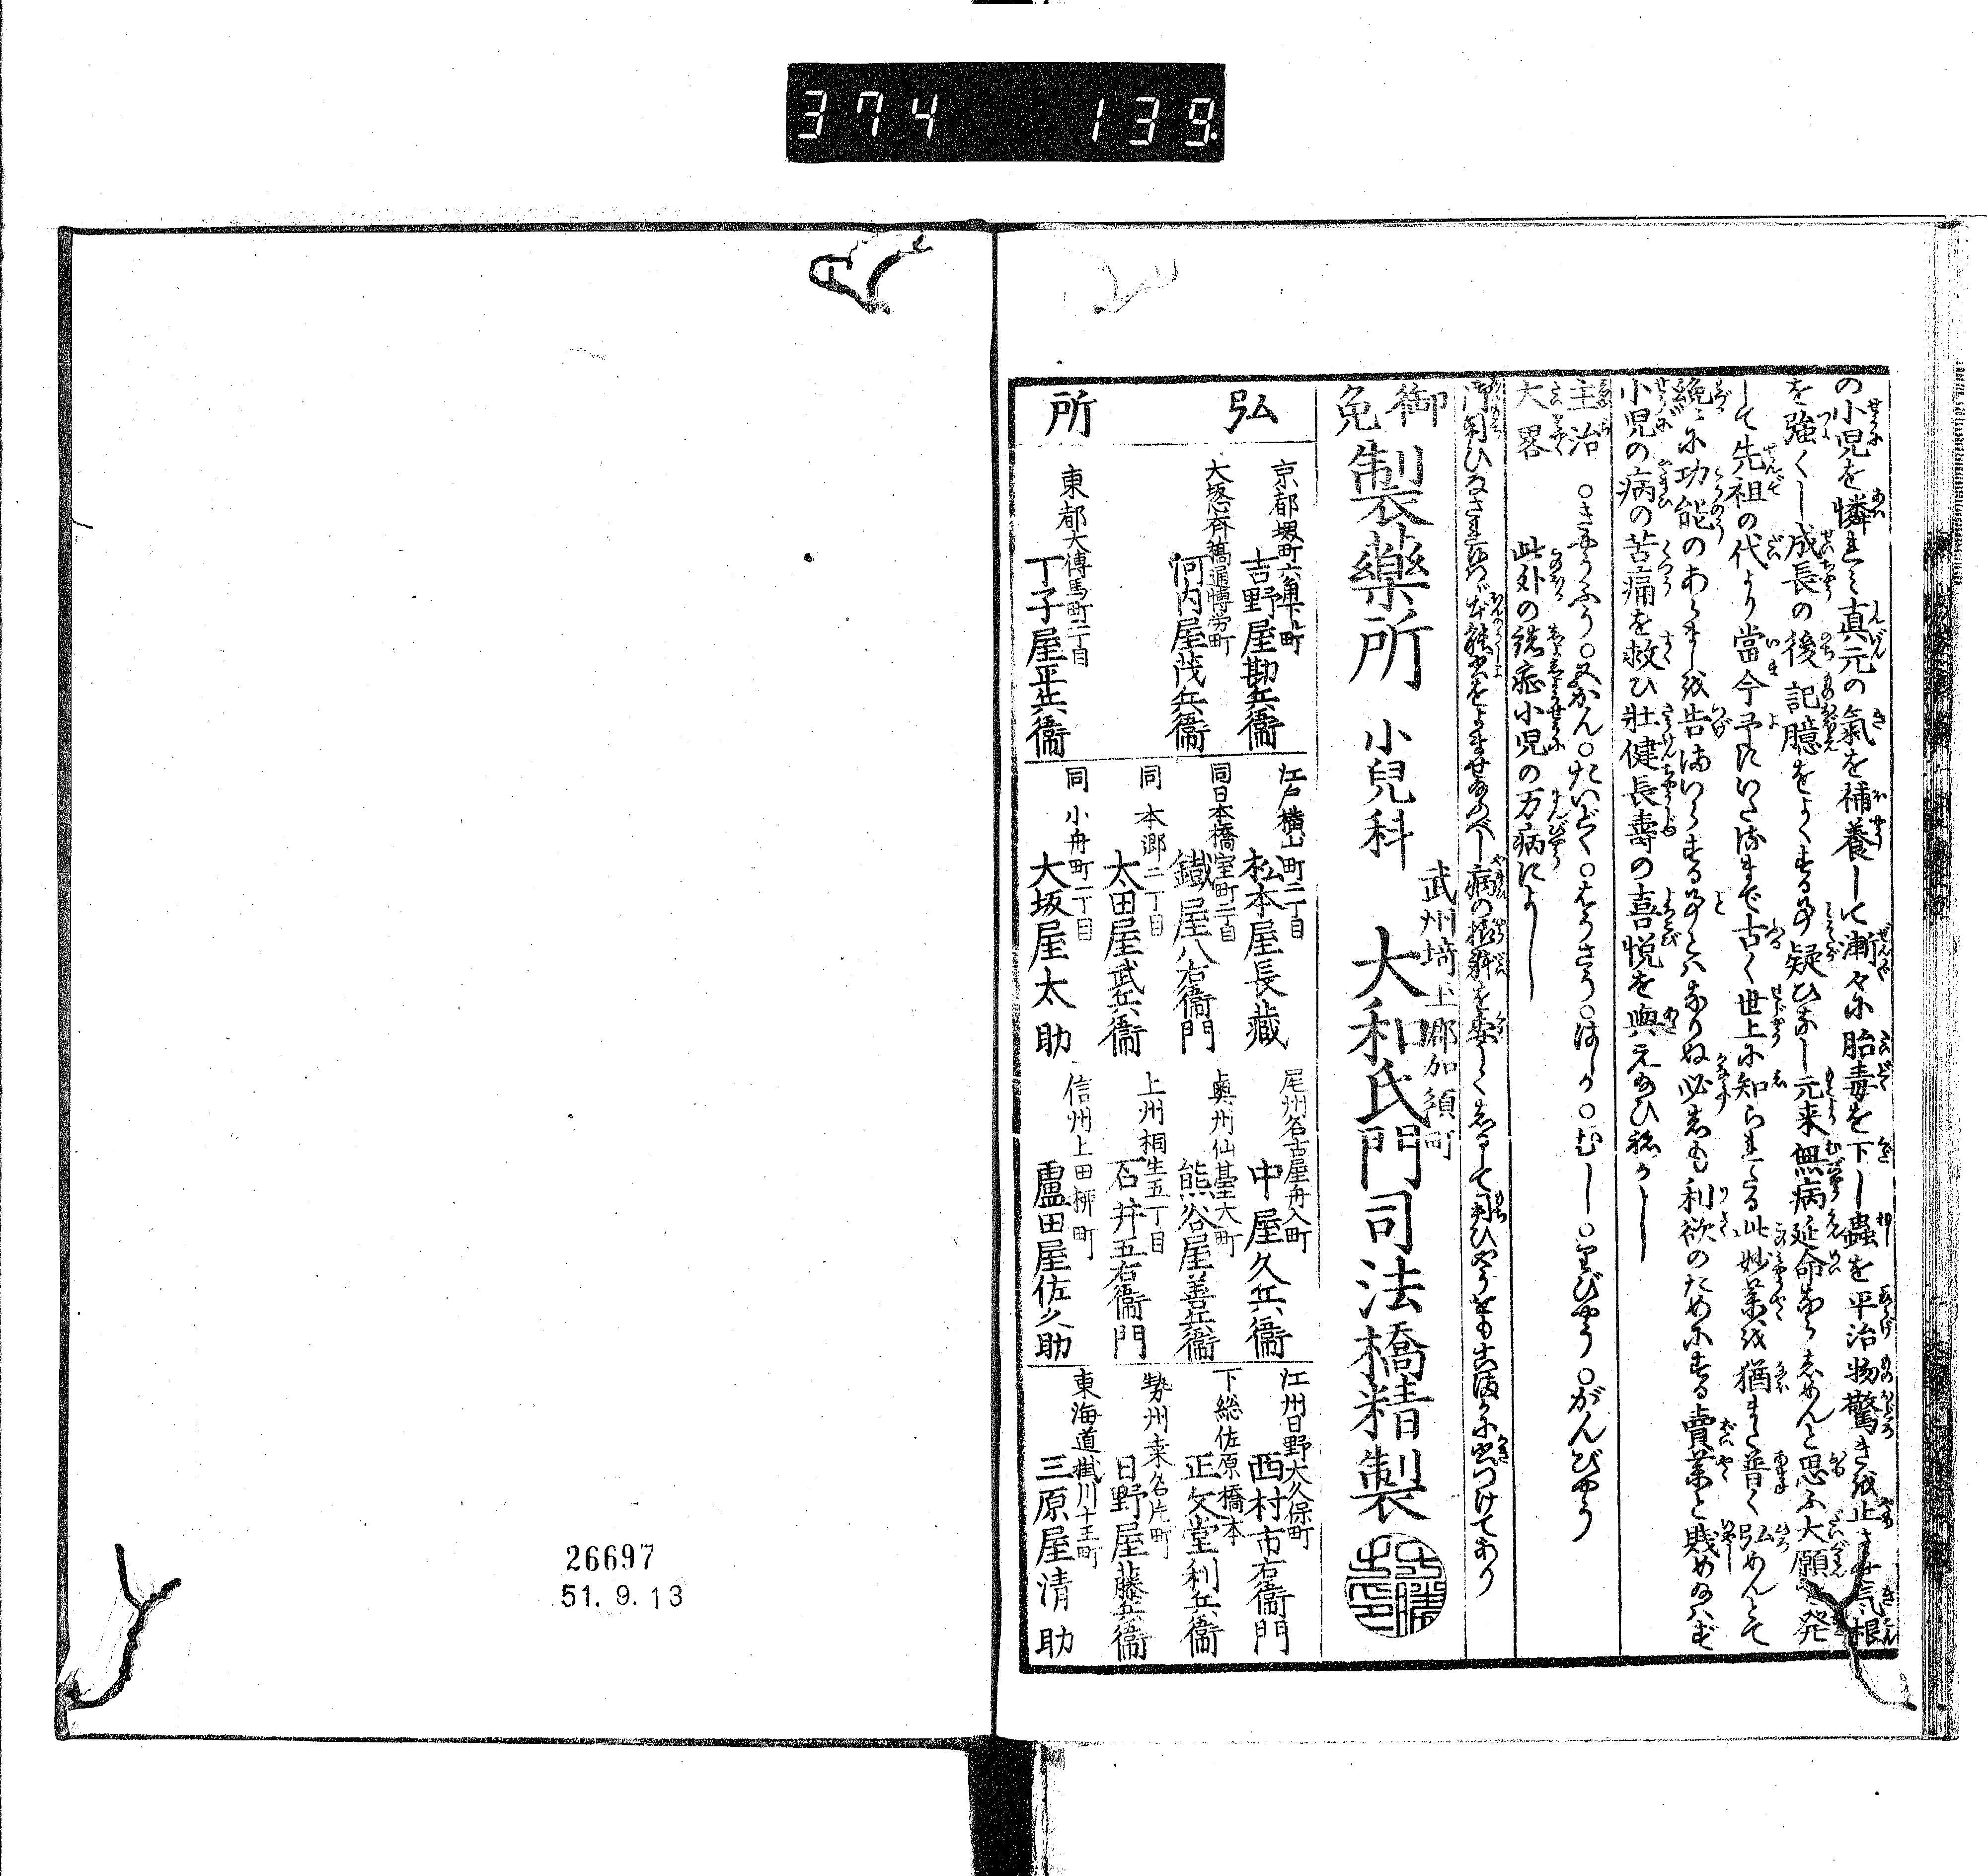 374 139
の小児を憐ミ真元の氣を補養して漸々に胎毒を下し蟲を平治物驚きを止させ気根
を強くし成長の後記臆をよくする事疑ひなし元来無病延命ならしめんと思ふ大願を発
して先祖の代より當今予にいたるまで古く世上に知られたる此妙薬を猶また普く弘めんとて
功能のあらましを告まいらする事とハなりぬ必しも利欲のためにする賣薬と賤め給ハず
小児の病の苦痛を救ひ壮健長壽の喜悦を與え給ひねかし
主治大畧
○きやうふう○五かん○たいどく○はうさう○はしか○むし○りびやう○がんびやう
此外の諸症小児の万病によし
御用ひなされ候ハゞ能書をよませ給ふべし病の容躰を委しくしるして用ひやうをもこまかに書つけてあり
御免
製藥所
小兒科
武州埼玉郡加須町
大和氏門司法橋精製
弘所
京都堺町六角下ル町
吉野屋勘兵衞
大坂心斉橋通博労町
河内屋茂兵衞
東都大傳馬町二丁目
丁子屋平兵衞
江戸横山町二丁目
松本屋長藏
同日本橋室町二丁目
鐵屋八右衞門
同本郷二丁目
太田屋武兵衞
同小舟町一丁目
大坂屋太助
尾州名古屋舟入町
中屋久兵衞
奥州仙臺大町
熊谷屋善兵衞
上州桐生五丁目
石井五右衞門
信州上田柳町
盧田屋佐久助
江州日野大久保町
西村市右衞門
下総佐原橋本
正文堂利兵衞
勢州桑名片町
日野屋藤兵衞
東海道掛川十王町
三原屋清助
26697
51. 9. 13